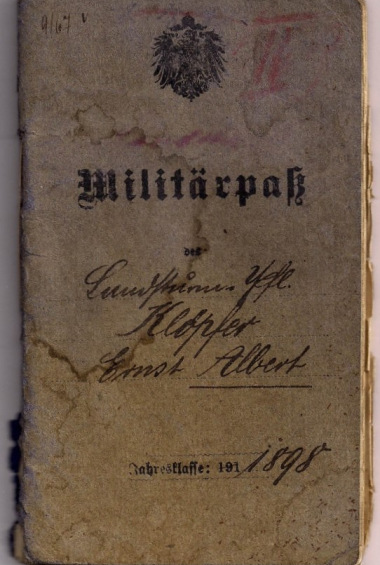 9/67
II
Militärpaß
des
Landsturm-Pfl.
Klöpfer
Ernst Albert
Jahresklasse: 191 1898